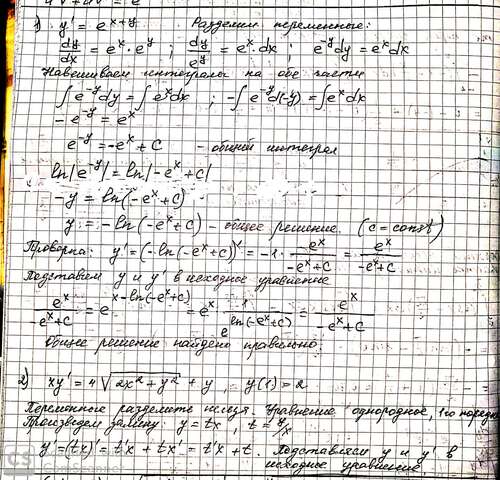 1) y' = e^{x+y} Разделим переменные:
dy/dx = e^x · e^y ; dy/e^y = e^x · dx ; e^{-y}dy = e^x dx
Навешиваем интегралы на обе части
∫e^{-y}dy = ∫e^x dx ; -∫e^{-y}d(-y) = ∫e^x dx
-e^{-y} = e^x
e^{-y} = -e^x + C - общий интеграл
ln|e^{-y}| = ln|-e^x + c|
-y = ln(-e^x + c)
y = -ln(-e^x + c) - общее решение (c = const)
Проверка: y' = (-ln(-e^x + c))' = -1 · -e^x/(-e^x + c) = e^x/(-e^x + c)
Подставим y и y' в исходное уравнение
e^x/(-e^x + c) = e^{x-ln(-e^x+c)} = e^x · 1/e^{ln(-e^x+c)} = e^x/(-e^x + c)
Общее решение найдено правильно
2) xy' = 4√(2x² + y²) + y , y(1) = 2
Переменные разделить нельзя. Уравнение однородное, 1го порядка
Произведем замену y = tx , t = y/x
y' = (tx)' = t'x + tx' = t'x + t. Подставим y и y' в
исходное уравнение
CS